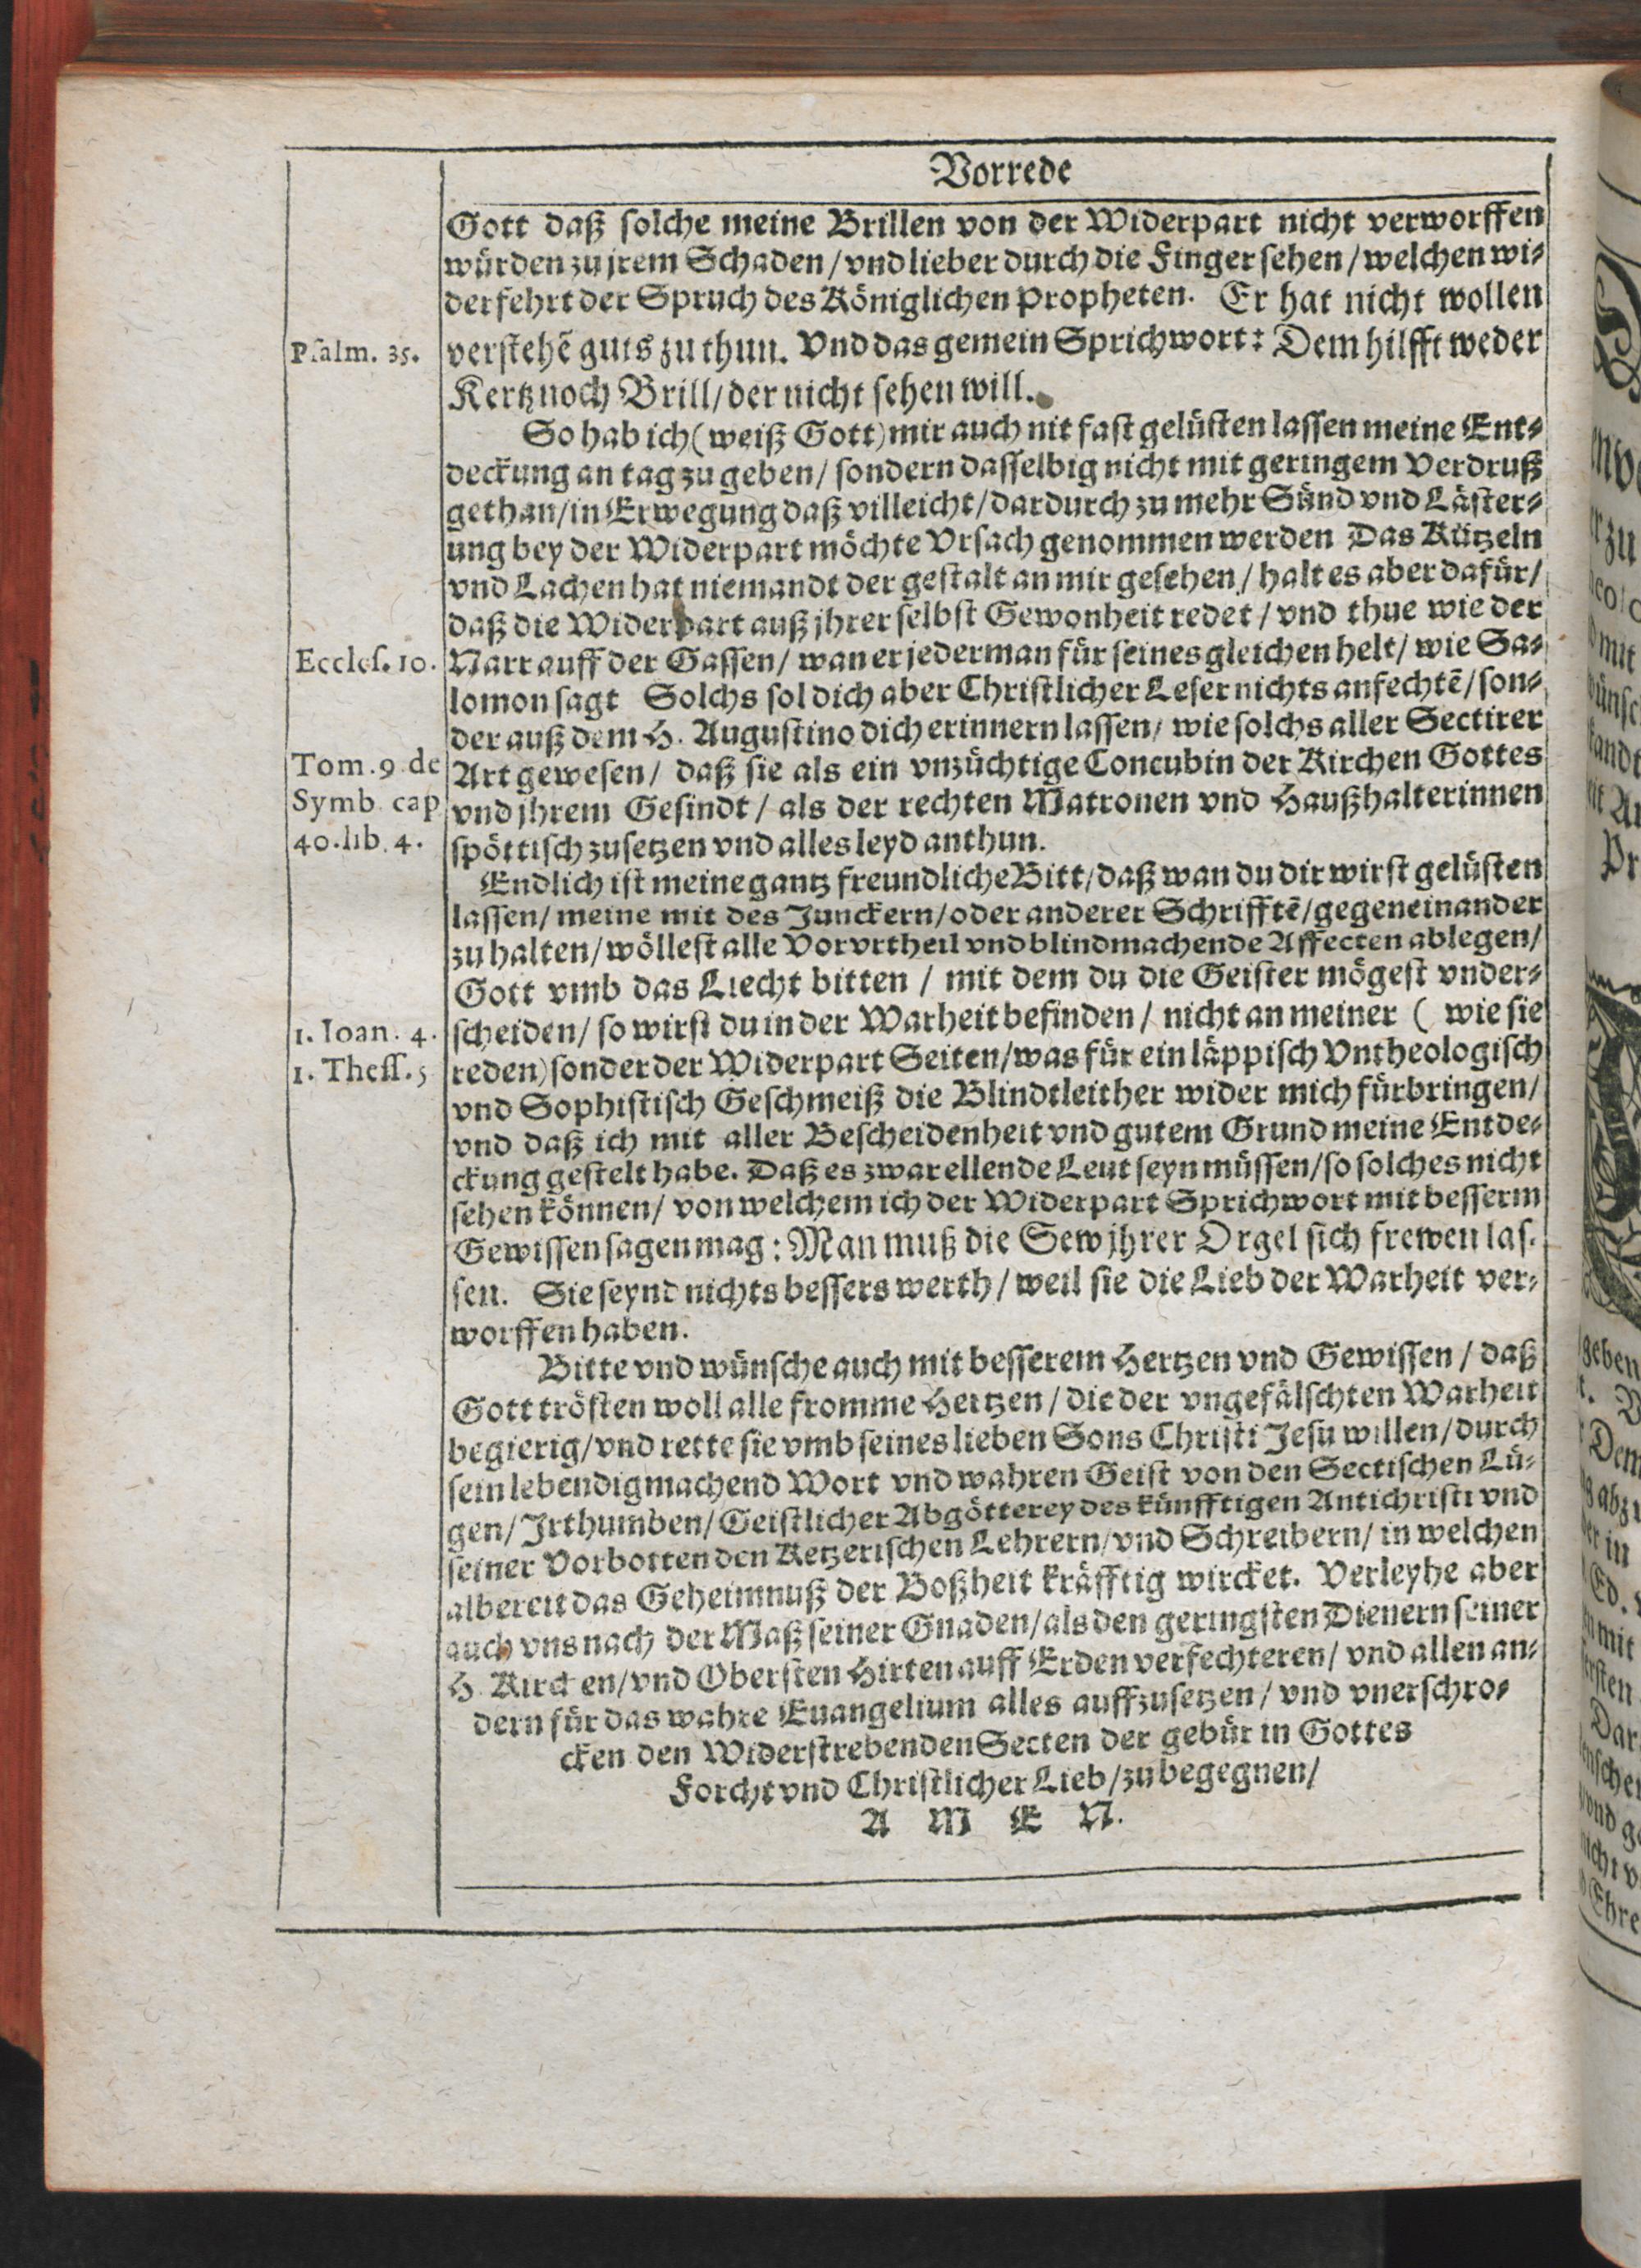 Vorrede
Gott daß solche meine Brillen von der Widerpart nicht verworffen
würden zu jrem Schaden / vnd lieber durch die Finger sehen / welchen wi⸗
derfehrt der Spruch des Königlichen Propheten. Er hat nicht wollen
Psalm. 35.
verstehẽ guts zu thun. Vnd das gemein Sprichwort: Dem hilfft weder
Kertz noch Brill / der nicht sehen will.
So hab ich (weiß Gott) mir auch nit fast gelüsten lassen meine Ent⸗
deckung an tag zu geben / sondern dasselbig nicht mit geringem Verdruß
gethan / in Erwegung daß villeicht / dardurch zu mehr Sünd vnd Läster⸗
ung bey der Widerpart möchte Vrsach genommen werden Das Kützeln
vnd Lachen hat niemandt der gestalt an mir gesehen / halt es aber dafür /
daß die Widerpart auß jhrer selbst Gewonheit redet / vnd thue wie der
Eccles. 10.
Narr auff der Gassen / wan er jederman für seines gleichen helt / wie Sa⸗
lomon sagt Solchs sol dich aber Christlicher Leser nichts anfechtẽ / son⸗
der auß dem H. Augustino dich erinnern lassen / wie solchs aller Sectirer
Tom. 9 de
Symb cap
40. lib. 4.
Art gewesen / daß sie als ein vnzüchtige Concubin der Kirchen Gottes
vnd jhrem Gesindt / als der rechten Matronen vnd Haußhalterinnen
spöttisch zusetzen vnd alles leyd anthun.
Endlich ist meine gantz freundliche Bitt / daß wan du dir wirst gelüsten
lassen / meine mit des Junckern / oder anderer Schrifftẽ / gegeneinander
zu halten / wöllest alle Vorvrtheil vnd blindmachende Affecten ablegen /
Gott vmb das Liecht bitten / mit dem du die Geister mögest vnder⸗
1. Ioan. 4.
1. Thess. 5
scheiden / so wirst du in der Warheit befinden / nicht an meiner ( wie sie
reden) sonder der Widerpart Seiten / was für ein läppisch Vntheologisch
vnd Sophistisch Geschmeiß die Blindtleither wider mich fürbringen /
vnd daß ich mit aller Bescheidenheit vnd gutem Grund meine Entde⸗
ckung gestelt habe. Daß es zwar ellende Leut seyn müssen / so solches nicht
sehen können / von welchem ich der Widerpart Sprichwort mit besserm
Gewissen sagen mag : Man muß die Sew jhrer Orgel sich frewen las⸗
sen. Sie seynd nichts bessers werth / weil sie die Lieb der Warheit ver⸗
worffen haben.
Bitte vnd wünsche auch mit besserem Hertzen vnd Gewissen / daß
Gott trösten woll alle fromme Hertzen / die der vngefälschten Warheit
begierig / vnd rette sie vmb seines lieben Sons Christi Jesu willen / durch
sein lebendigmachend Wort vnd wahren Geist von den Sectischen Lü⸗
gen / Jrthumben / Geistlicher Abgötterey des künfftigen Antichristi vnd
seiner Vorbotten den Ketzerischen Lehrern / vnd Schreibern / in welchen
albereit das Geheimnuß der Boßheit kräfftig wircket. Verleyhe aber
auch vns nach der Maß seiner Gnaden / als den geringsten Dienern seiner
H. Kirchen / vnd Obersten Hirten auff Erden verfechteren / vnd allen an⸗
dern für das wahre Euangelium alles auffzusetzen / vnd vnerschro⸗
cken den Widerstrebenden Secten der gebür in Gottes
Forcht vnd Christlicher Lieb / zu begegnen /
A M E N.